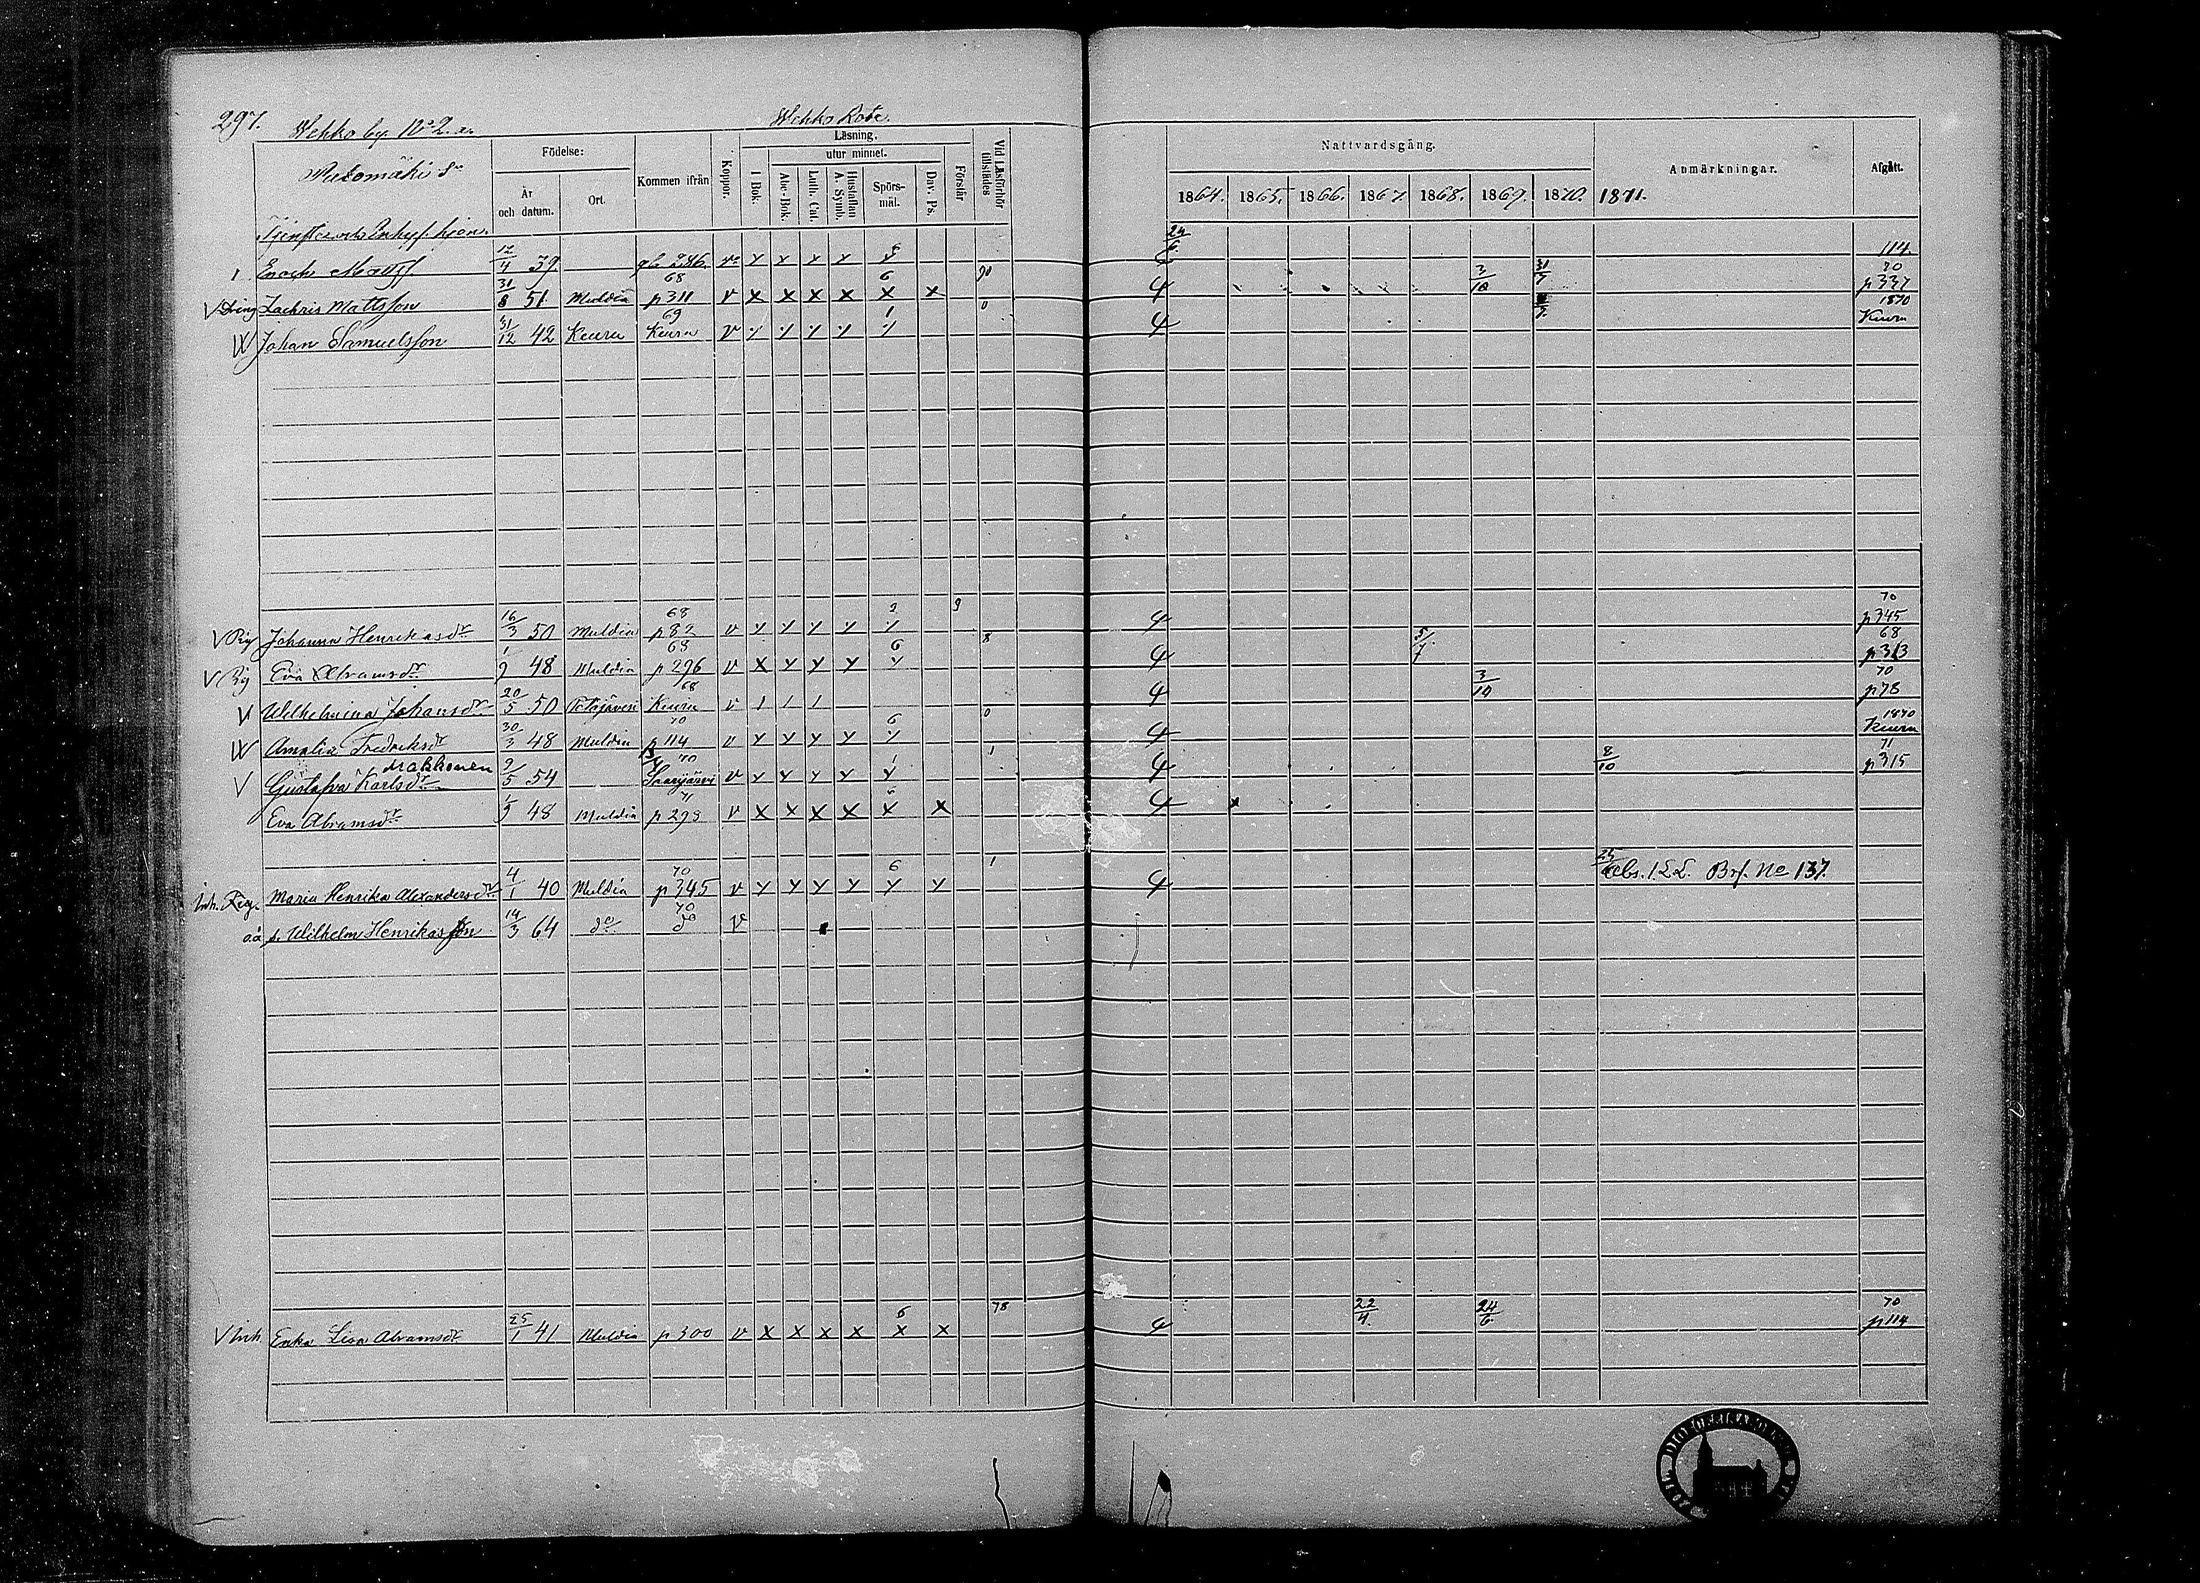 297. Wehko by. No 2. a. Wehko Rote.
Födelse: Kommen ifrån Koppor. Läsning. Vid Läsförhör tillstädes Nattvardsgång. Anmärkningar. Afgått.
År och datum. Ort. I Bok. utur minnet. Förstår
Abc-Bok. Luth. Cat. Hustaflan A. Symb. Spörs-mål. Dav. Ps.
1864. 1865. 1866. 1867. 1868. 1869. 1870. 1871.
Enoch Matts 12/4 39. 24/6 114.
V Dräng Zachris Mattsson 31/8 51 Muldia 68 p 311 v x x x x 6 x x 70 4 3/10 31/7 70 p 337
Johan Samuelsson 31/12 42 Keuru 69 Keuru v 1 0 4 1870 Keuru
V Pig Johanna Henriksdr 16/3 50 Muldia 68 p 82 v y y y y 9 4 70 p 345
V Pig Eva Abramsdr 1/9 48 Muldia 68 p 296 v x y y y 6 y 8 4 5/7 68 p 313
V Wilhelmina Johansdr 20/5 50 Keuru 68 v 1 1 1 4 3/10 70 p 78
Amalia Fredriksdr 30/3 48 Muldia 70 p 114 v y y y y 6 0 4 1870 Keuru
Makkonen
V Gustafva Karlsdr 9/5 54 70 Saarijärvi v y y y y 1 y 1 4 8/10 71 p 315
Eva Abramsdr 1/9 48 Muldia 71 p 293 v x x x x 6 x x 4 x
Inh. Pig. Maria Henrika Alexandersdr 4/1 40 Muldia 70 p 345 v y y y y 6 y y 1 4 Abs. 1. Brf. No 137.
o.ä. s. Wilhelm Henrikasson 14/3 64 do 70 do v
V Inh. Erika Lisa Abramsdr 25/1 41 Muldia p 300 v x x x x 6 x x 78 4 22/4. 24/6. 70 p 114